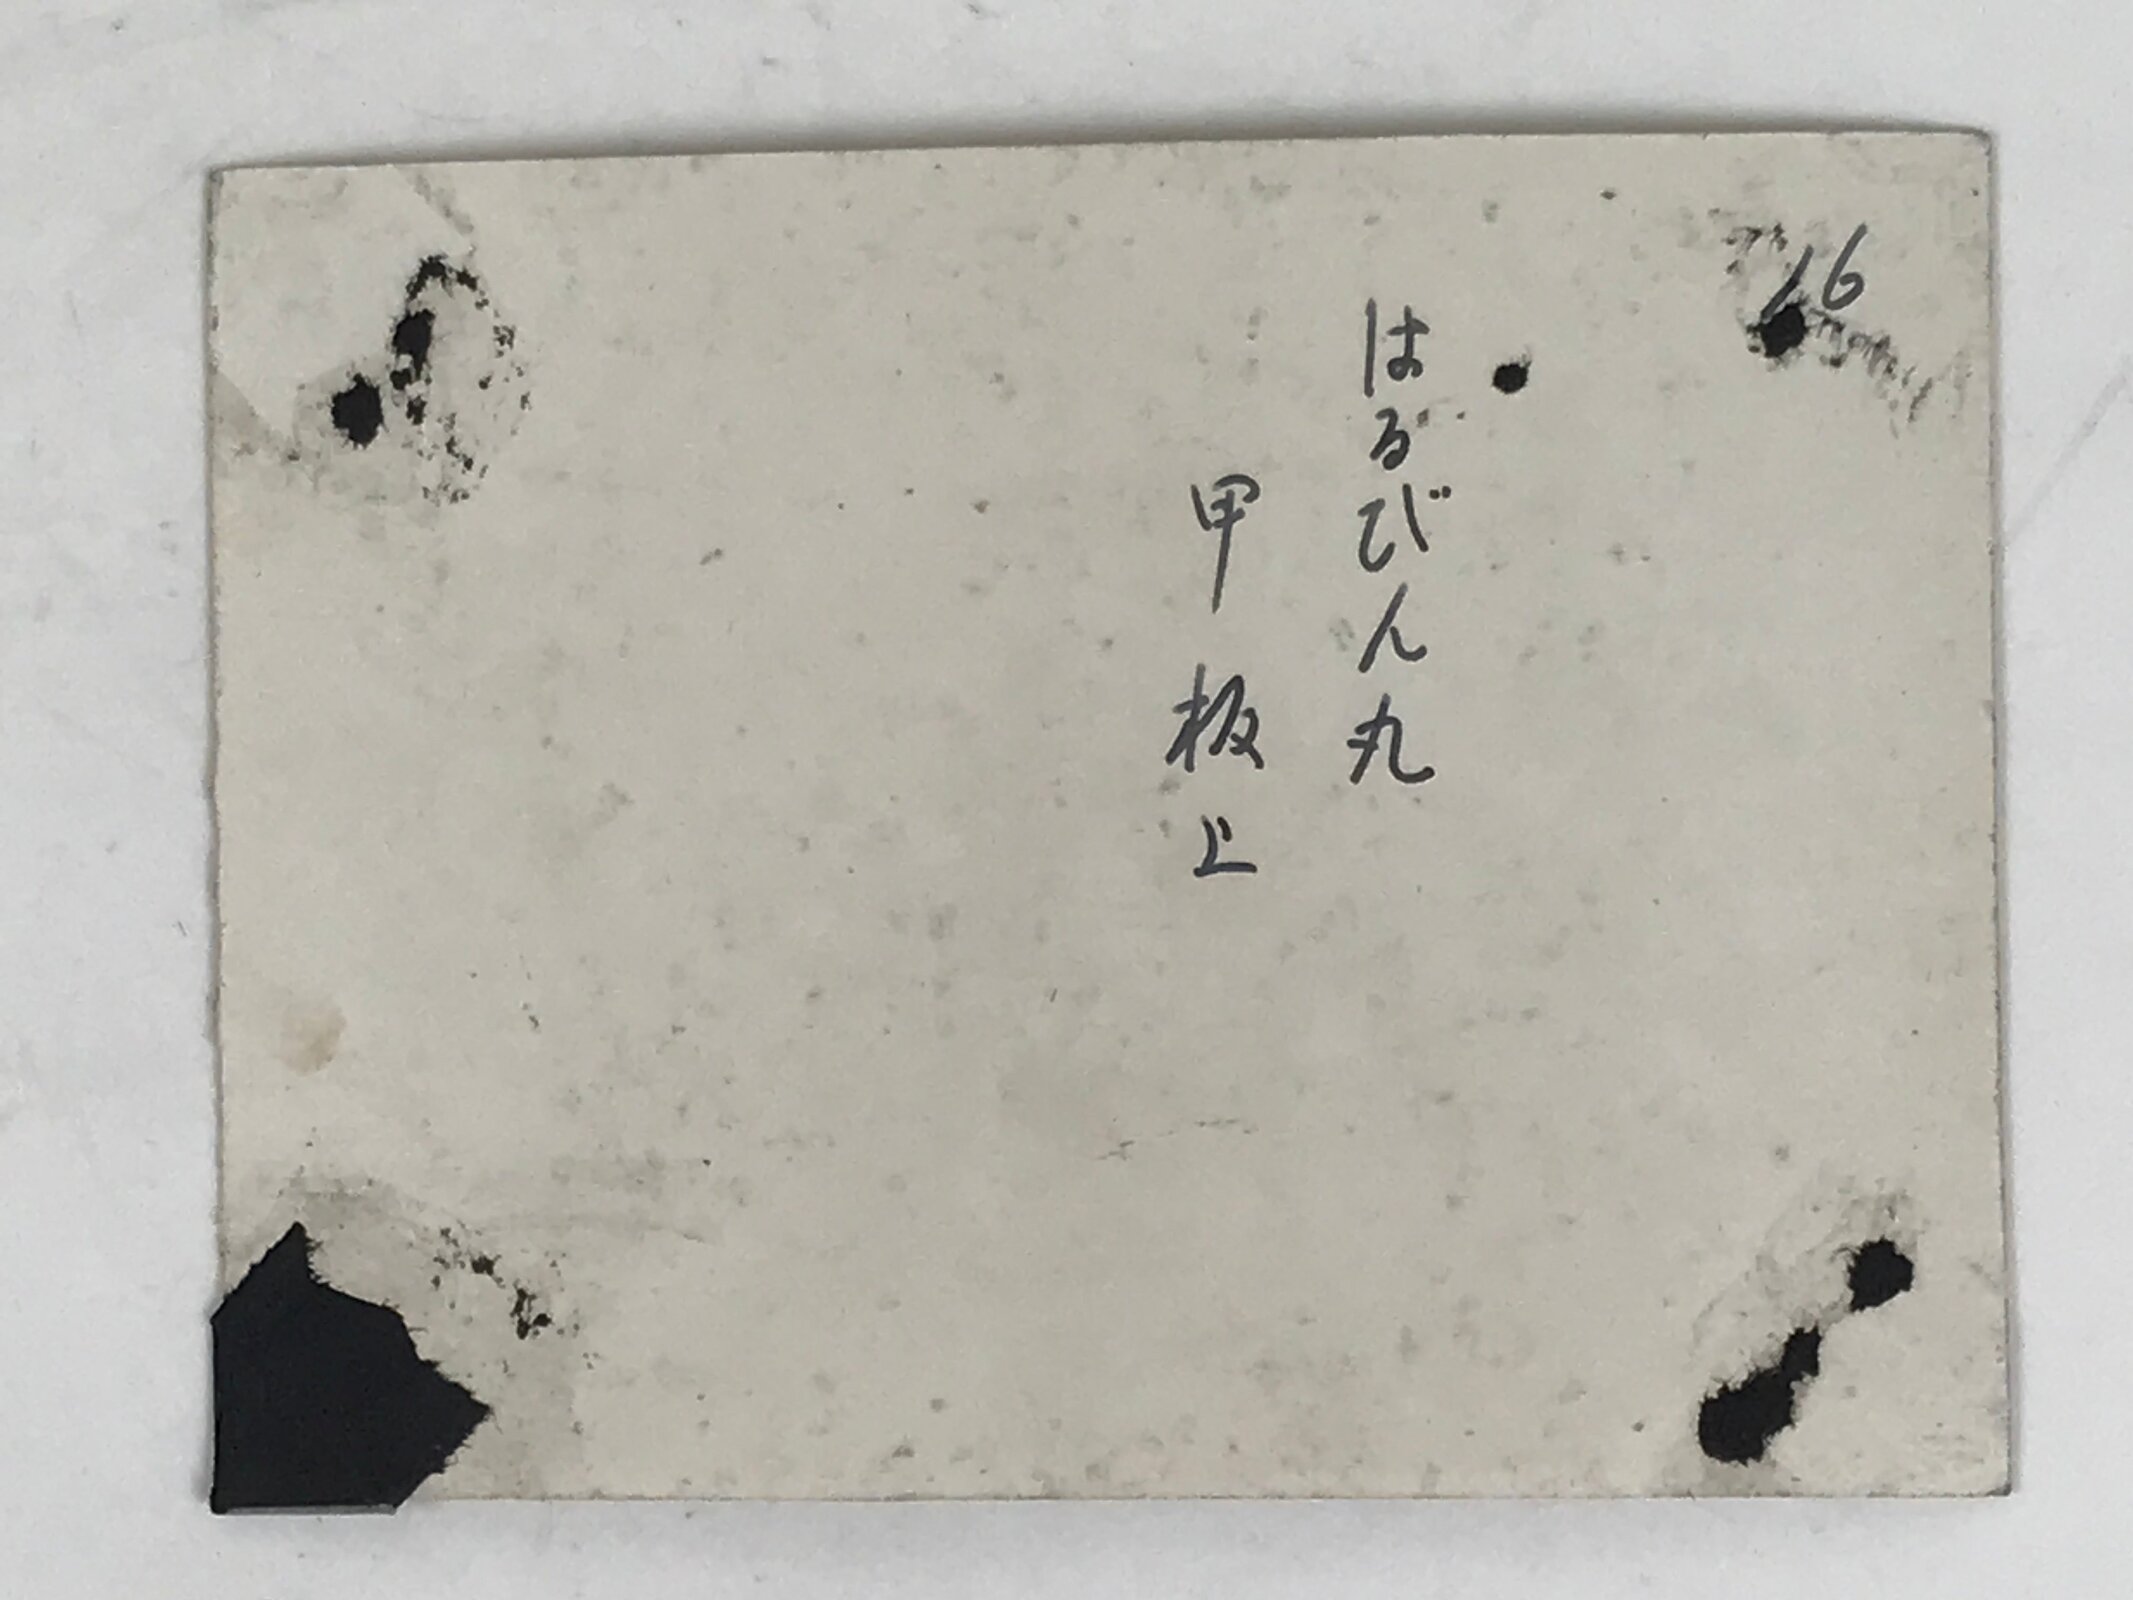 16
はるびん丸
甲板上